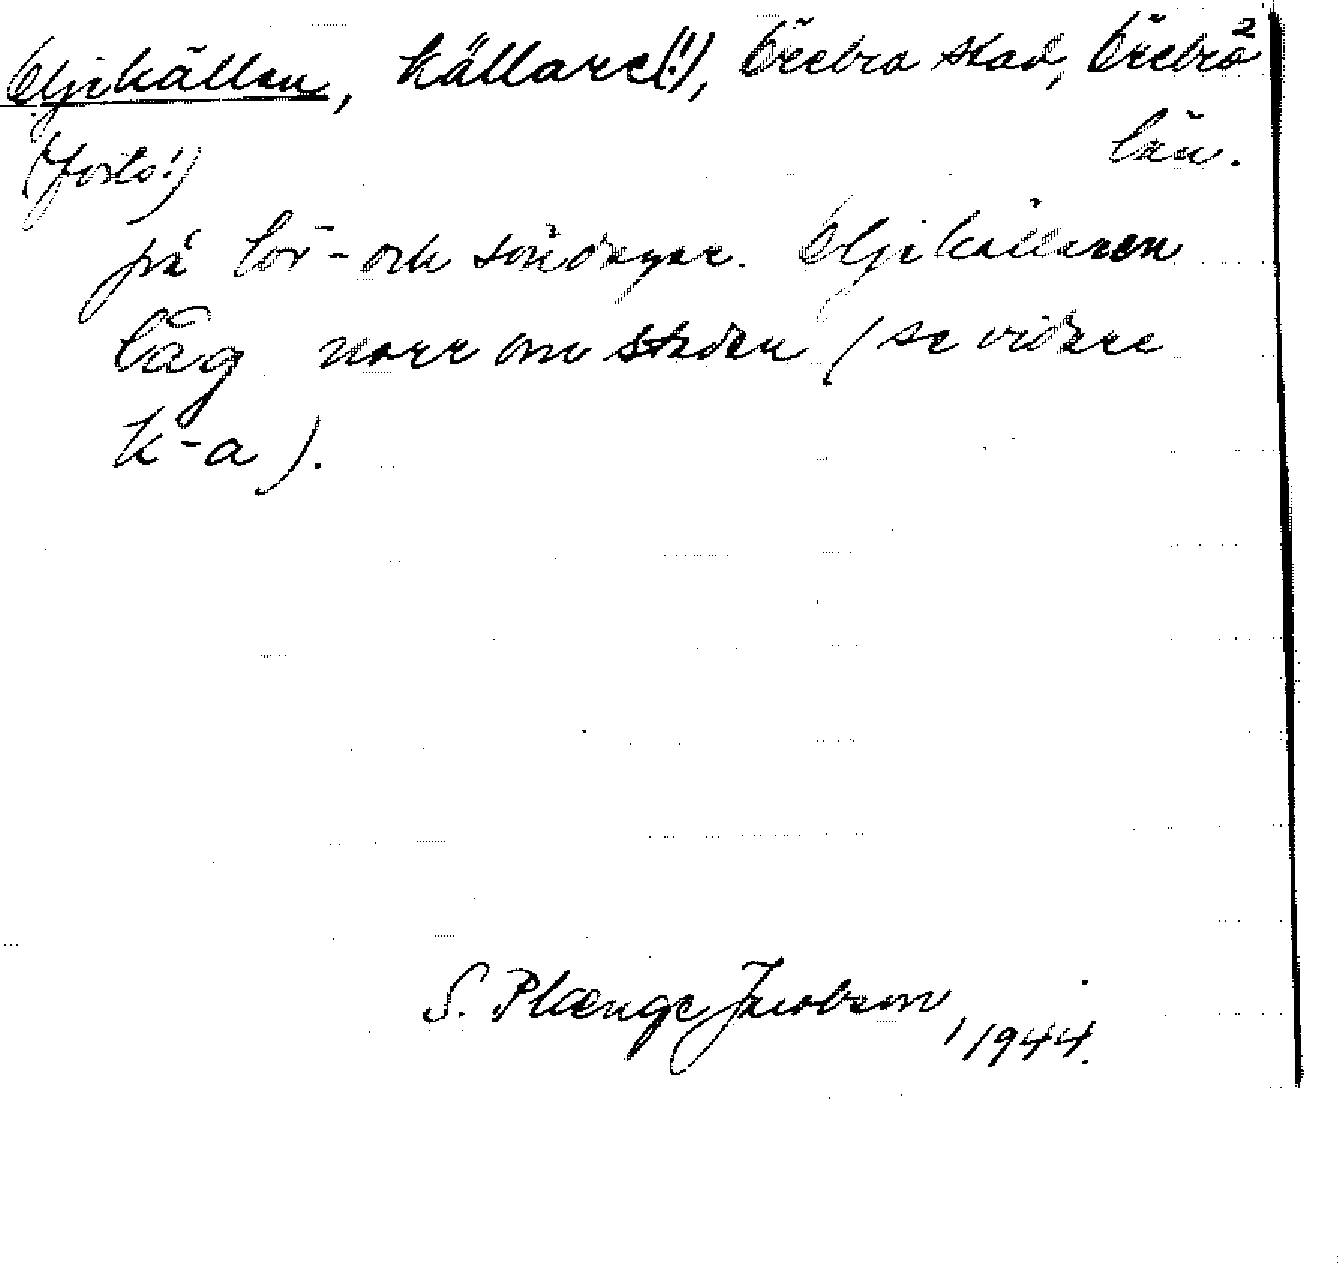 Oljekällan, källare(!), Örebro stad, Örebro 2
(forts!) län.
på lör- och söndagar. Oljekällaren
låg norr om staden (se vidare
k-a).
S. Plænge Jacobson, 1944.